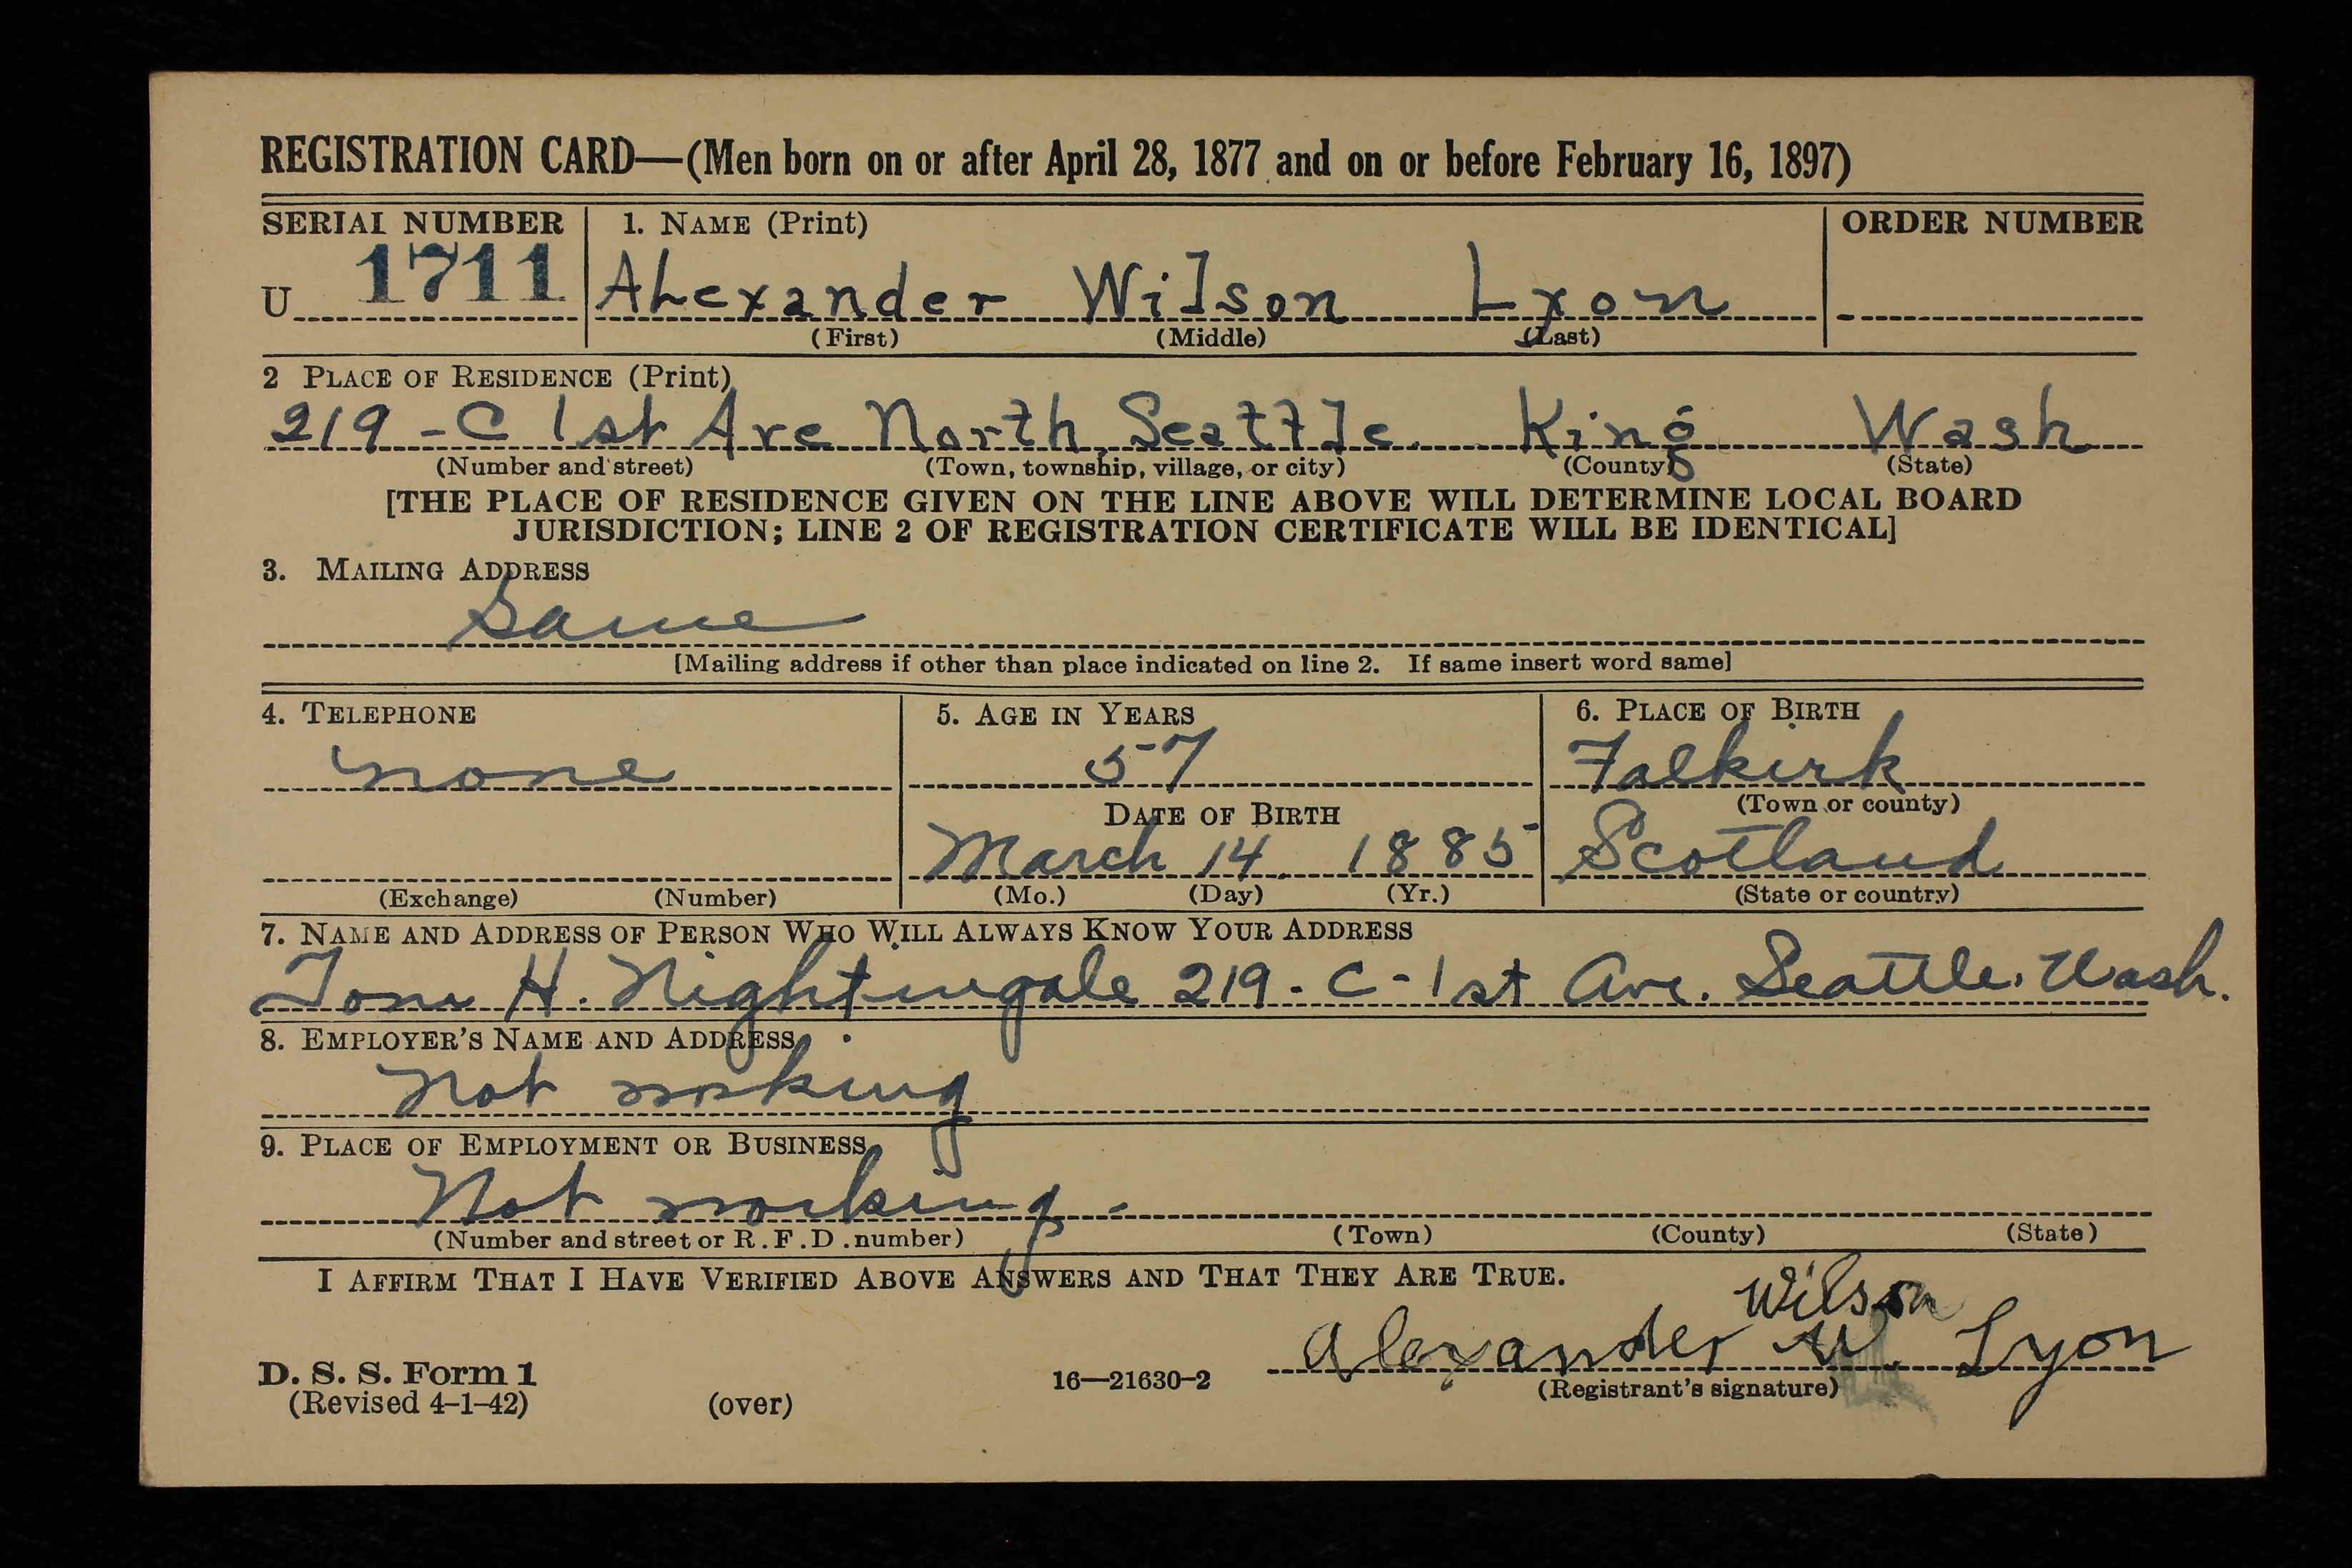 REGISTRATION CARD—(Men born on or after April 28, 1877 and on or before February 16, 1897)
SERIAL NUMBER 1. NAME (Print) ORDER NUMBER
U 1711 Alexander Wilson Lyon
(First) (Middle) (Last)
2 PLACE OF RESIDENCE (Print)
219 - C 1st Ave North Seattle. King Wash
(Number and street) (Town, township, village, or city) (County) (State)
[THE PLACE OF RESIDENCE GIVEN ON THE LINE ABOVE WILL DETERMINE LOCAL BOARD
JURISDICTION; LINE 2 OF REGISTRATION CERTIFICATE WILL BE IDENTICAL]
3. MAILING ADDRESS
Same
[Mailing address if other than place indicated on line 2. If same insert word same]
4. TELEPHONE 5. AGE IN YEARS 6. PLACE OF BIRTH
none 57 Falkirk
DATE OF BIRTH (Town or county)
March 14. 1885 Scotland
(Exchange) (Number) (Mo.) (Day) (Yr.) (State or country)
7. NAME AND ADDRESS OF PERSON WHO WILL ALWAYS KNOW YOUR ADDRESS
Tom H. Nightingale 219 - C - 1st Ave. Seattle. Wash.
8. EMPLOYER'S NAME AND ADDRESS
Not working
9. PLACE OF EMPLOYMENT OR BUSINESS
Not working -
(Number and street or R.F.D. number) (Town) (County) (State)
I AFFIRM THAT I HAVE VERIFIED ABOVE ANSWERS AND THAT THEY ARE TRUE.
Wilson
Alexander W. Lyon
D. S. S. Form 1 16—21630-2 (Registrant's signature)
(Revised 4-1-42) (over)